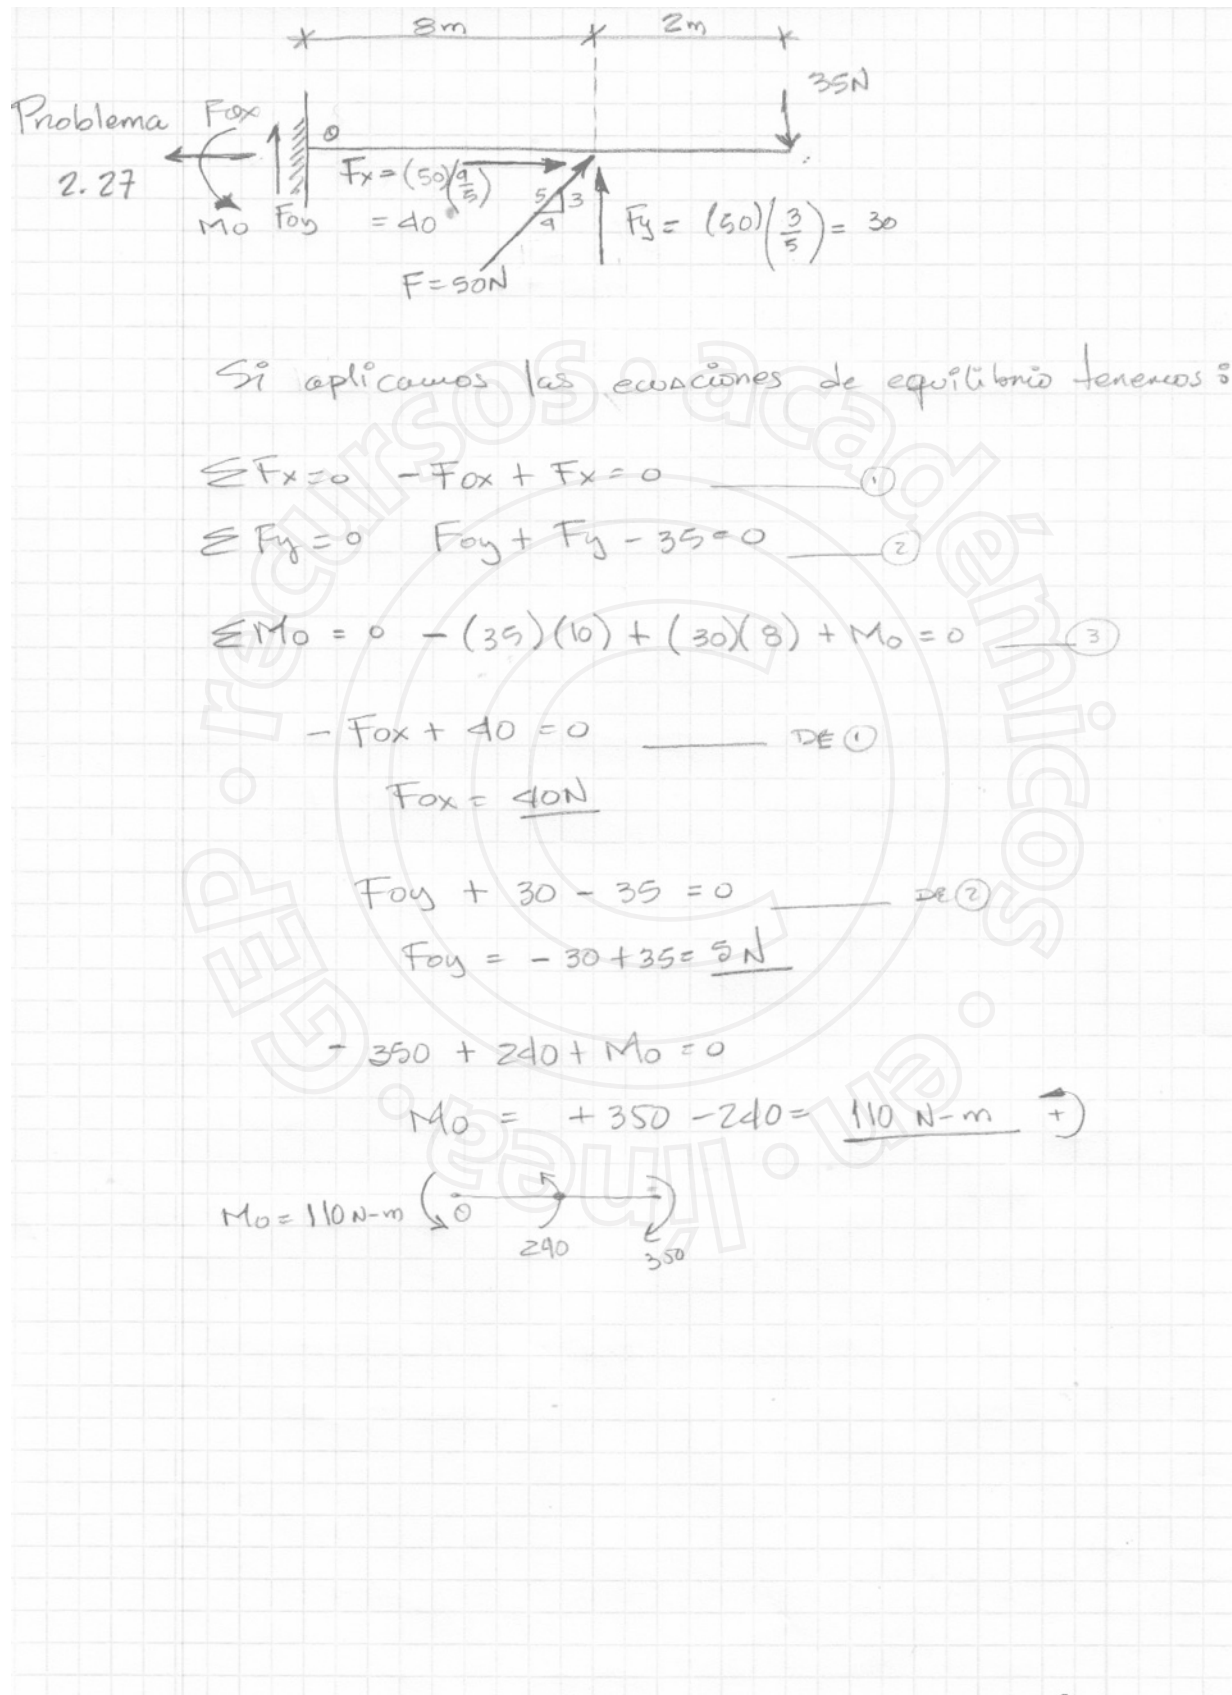 8m 2m
35N
Problema
2.27
Fox
Mo Foy
O
Fx = (50)(4/5)
= 40
5 3
4
F = 50N
Fy = (50)(3/5) = 30
Si aplicamos las ecuaciones de equilibrio tenemos:
ΣFx = 0 - Fox + Fx = 0 ①
ΣFy = 0 Foy + Fy - 35 = 0 ②
ΣMo = 0 - (35)(10) + (30)(8) + Mo = 0 ③
- Fox + 40 = 0 DE ①
Fox = 40N
Foy + 30 - 35 = 0 DE ②
Foy = - 30 + 35 = 5N
- 350 + 240 + Mo = 0
Mo = + 350 - 240 = 110 N-m +
Mo = 110 N-m O
240
350
GEP · recursos · académicos · en · línea ·